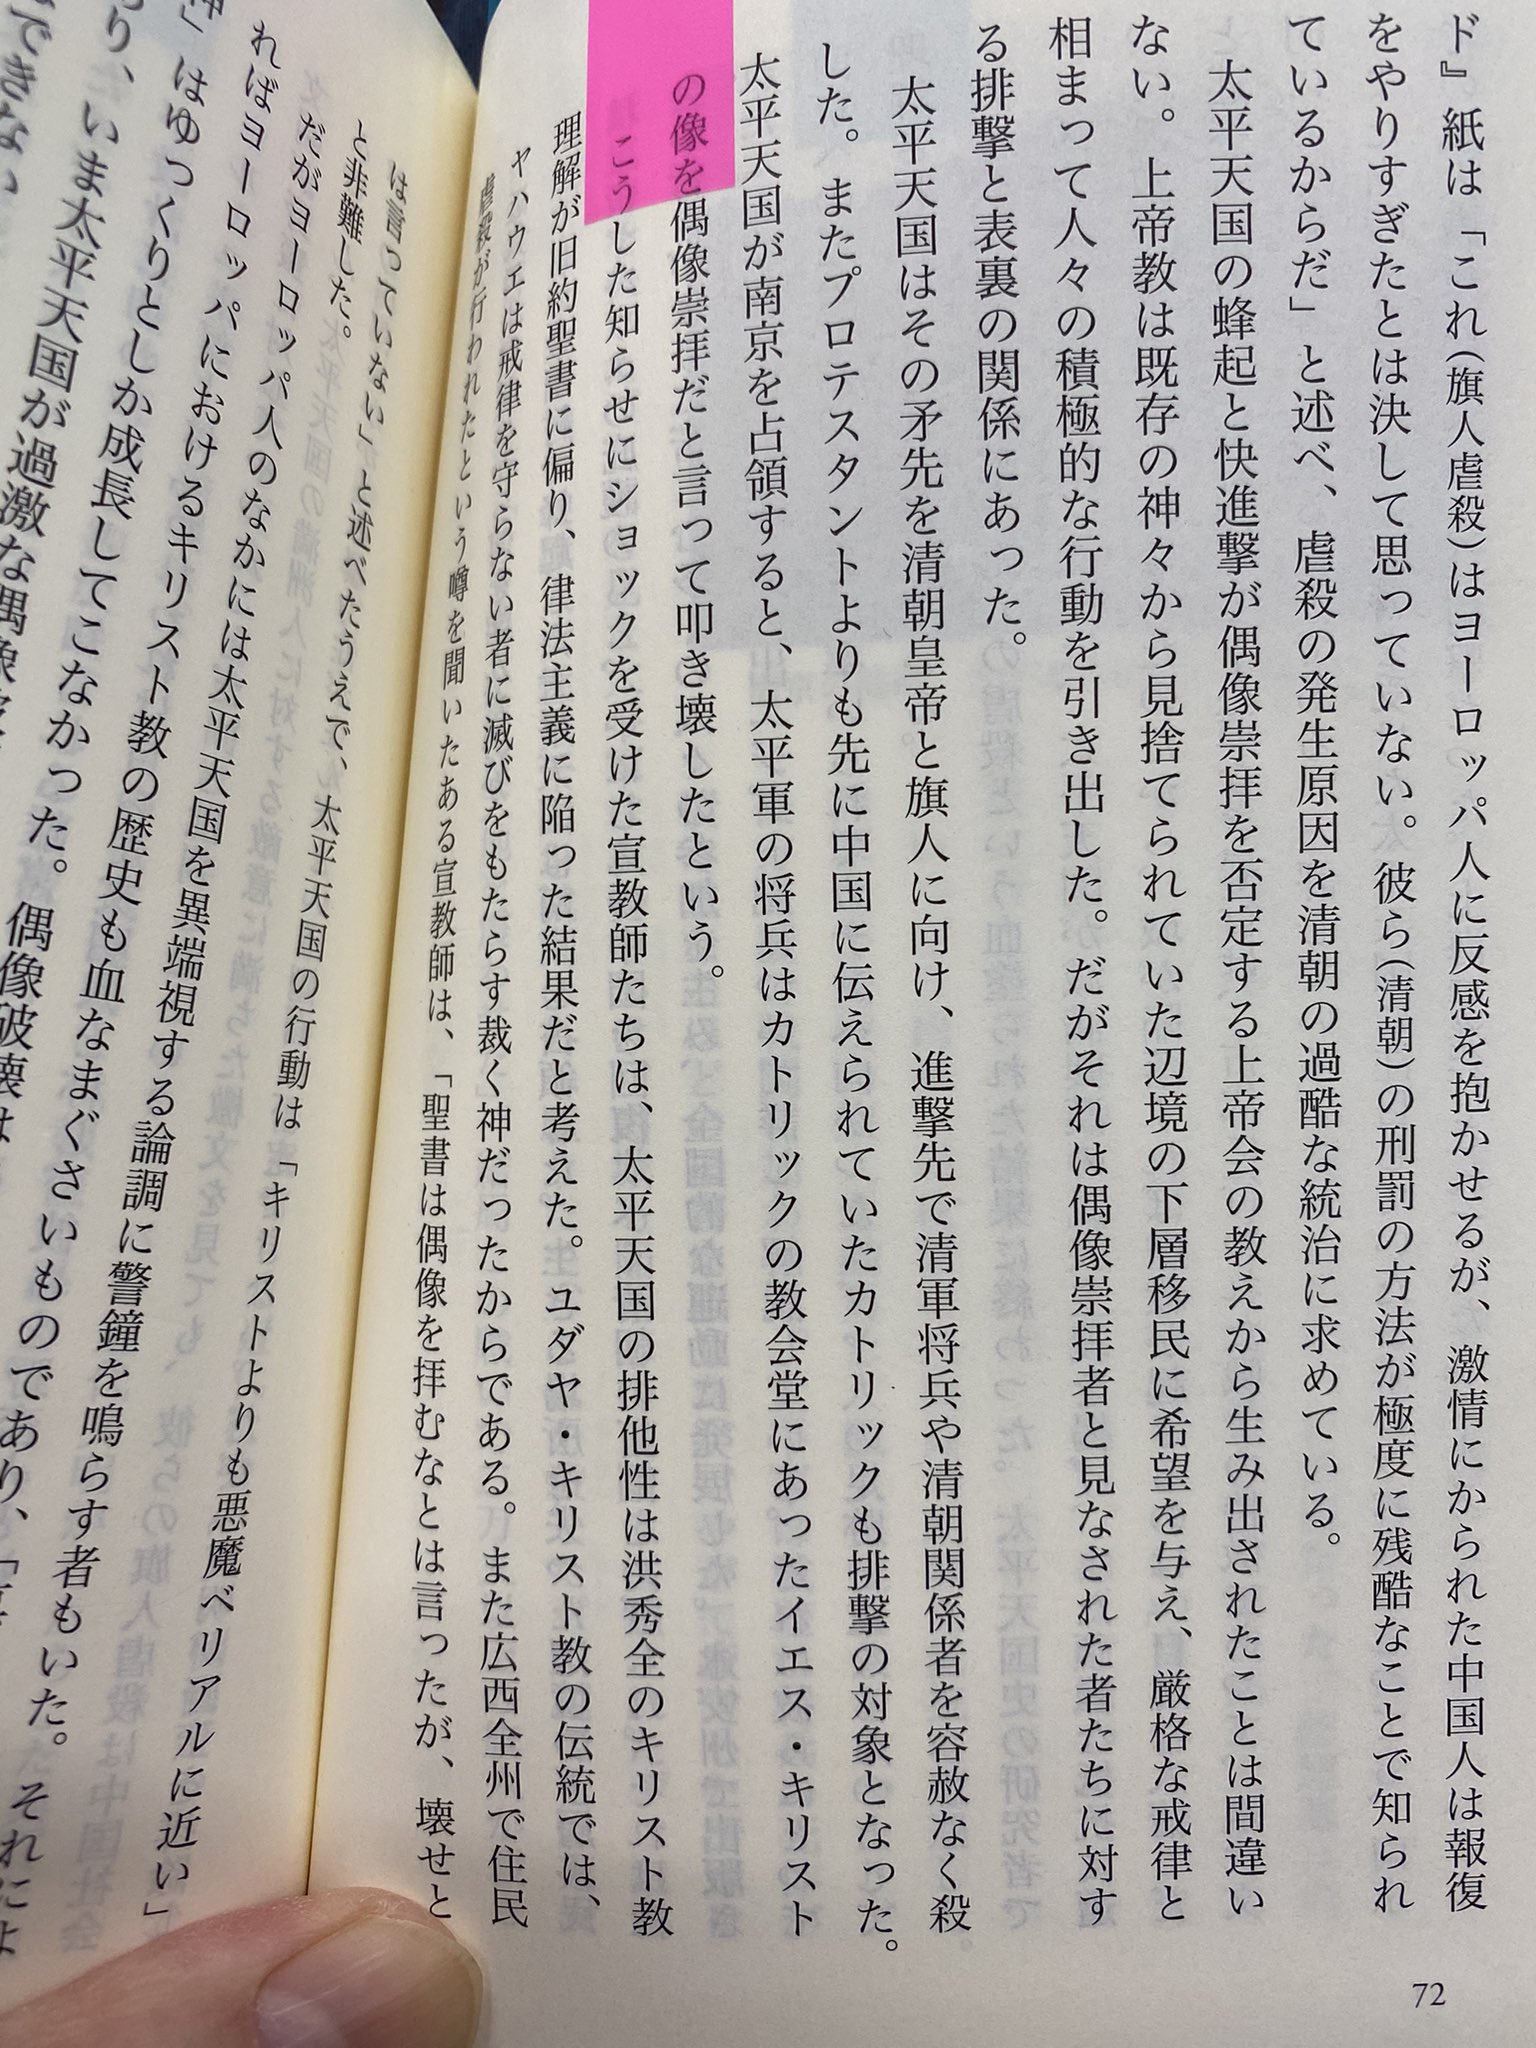 ド』紙は「これ(旗人虐殺)はヨーロッパ人に反感を抱かせるが、激情にかられた中国人は報復
をやりすぎたとは決して思っていない。彼ら(清朝)の刑罰の方法が極度に残酷なことで知られ
ているからだ」と述べ、虐殺の発生原因を清朝の過酷な統治に求めている。
太平天国の蜂起と快進撃が偶像崇拝を否定する上帝会の教えから生み出されたことは間違い
ない。上帝教は既存の神々から見捨てられていた辺境の下層移民に希望を与え、厳格な戒律と
相まって人々の積極的な行動を引き出した。だがそれは偶像崇拝者と見なされた者たちに対す
る排撃と表裏の関係にあった。
太平天国はその矛先を清朝皇帝と旗人に向け、進撃先で清軍将兵や清朝関係者を容赦なく殺
した。またプロテスタントよりも先に中国に伝えられていたカトリックも排撃の対象となった。
太平天国が南京を占領すると、太平軍の将兵はカトリックの教会堂にあったイエス・キリスト
の像を偶像崇拝だと言って叩き壊したという。
こうした知らせにショックを受けた宣教師たちは、太平天国の排他性は洪秀全のキリスト教
理解が旧約聖書に偏り、律法主義に陥った結果だと考えた。ユダヤ・キリスト教の伝統では、
ヤハウエは戒律を守らない者に滅びをもたらす裁く神だったからである。また広西全州で住民
虐殺が行われたという噂を聞いたある宣教師は、「聖書は偶像を拝むなとは言ったが、壊せと
72
は言っていない」と述べたうえで、太平天国の行動は「キリストよりも悪魔ベリアルに近い」
と非難した。
だがヨーロッパ人のなかには太平天国を異端視する論調に警鐘を鳴らす者もいた。
ればヨーロッパにおけるキリスト教の歴史も血なまぐさいものであり、
はゆっくりとしか成長してこなかった。偶像破壊は
り、いま太平天国が過激な偶像
できない
それによ